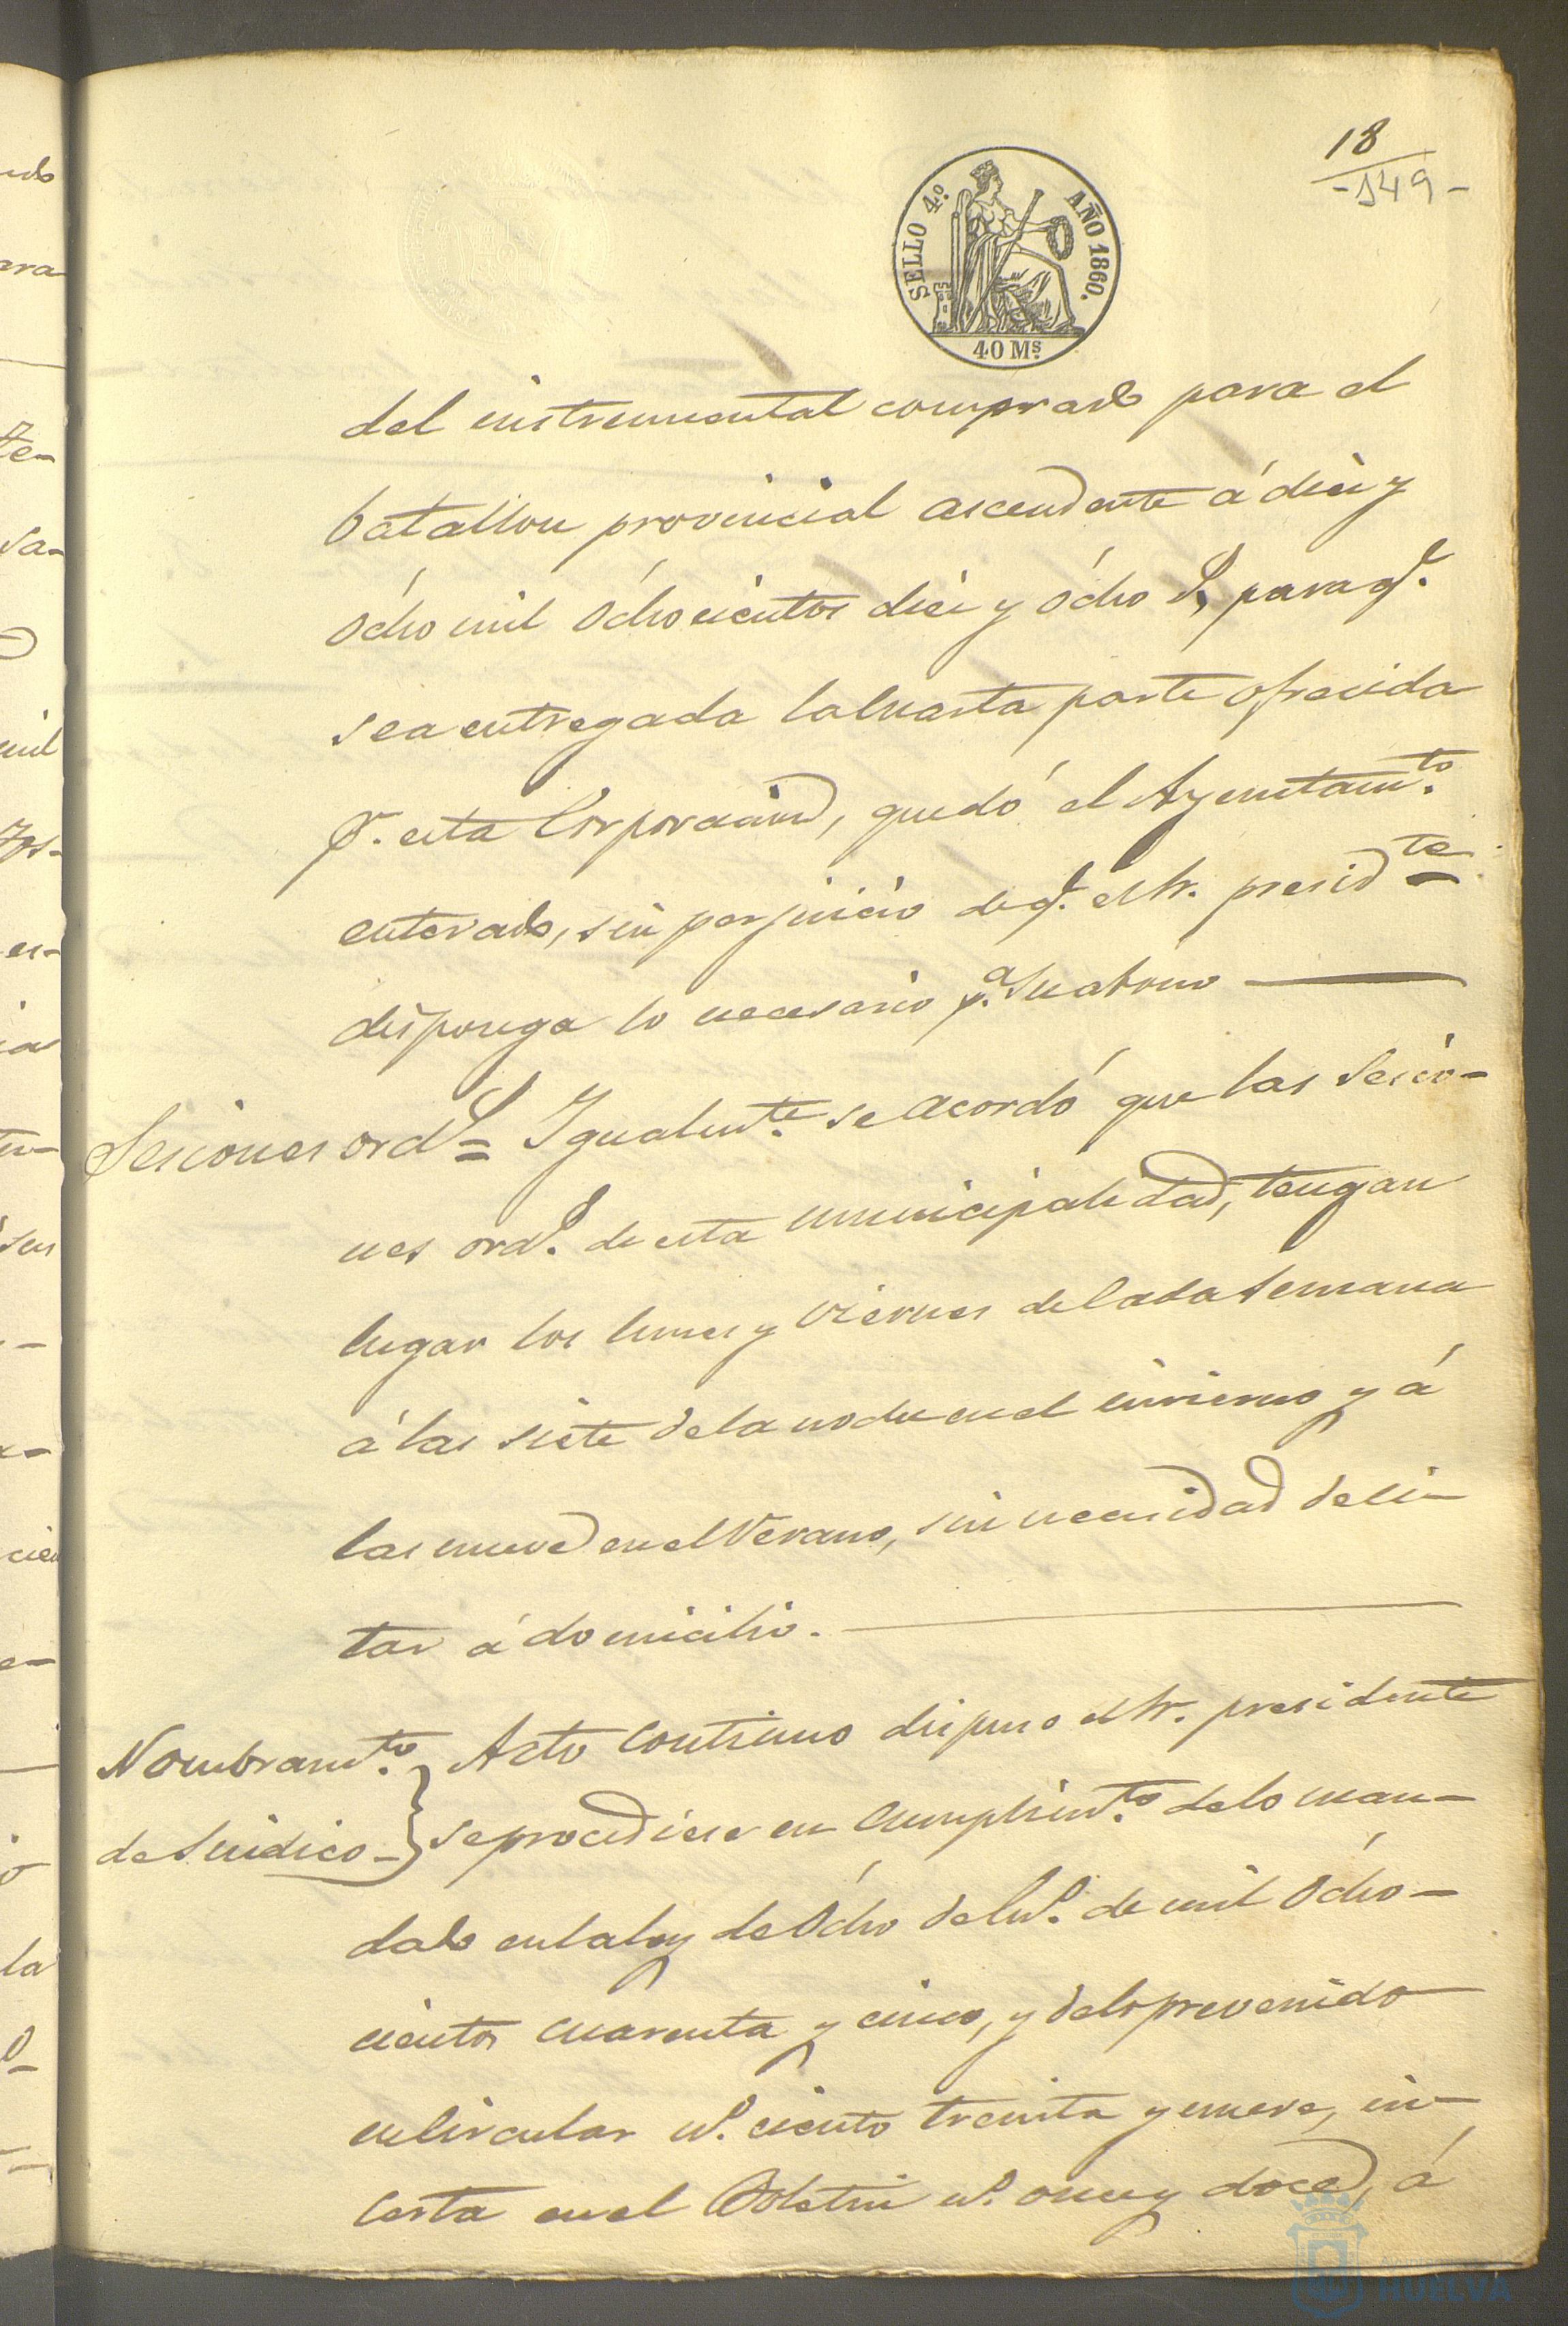 18
-149-
SELLO 4º AÑO 1860.
40 Mˢ
del instrumental comprado para el
batallon provincial ascendente á diez y
ócho mil óchocientos diez y ócho rˢ, para qᵉ.
sea entregada la cuarta parte ofrecida
pʳ. esta Corporacion, quedó el Ayuntamᵗᵒ.
enterado, sin perjuicio de qᵉ. el Sr. presidᵗᵉ
disponga lo necesario pᵃ. su abono
Sesiones ordˢ = Igualmᵗᵉ. se acordó que las sesio-
nes ordˢ. de esta municipalidad, tengan
lugar los lunes y viernes de cada semana
á las siete de la noche en el invierno y á
las nueve en el verano, sin necesidad de ci-
tar á domicilio.
Nombramᵗᵒ. Acto continuo dispuso el Sr. presidente
de Sindico- se procediese en cumplimᵗᵒ. de lo man-
dado en la ley de ócho de Enº. de mil ócho-
cientos cuarenta y cinco, y de lo prevenido
en circular nº. ciento treinta y nueve, in-
certa en el Boletin nº. once y doce, á
HUELVA